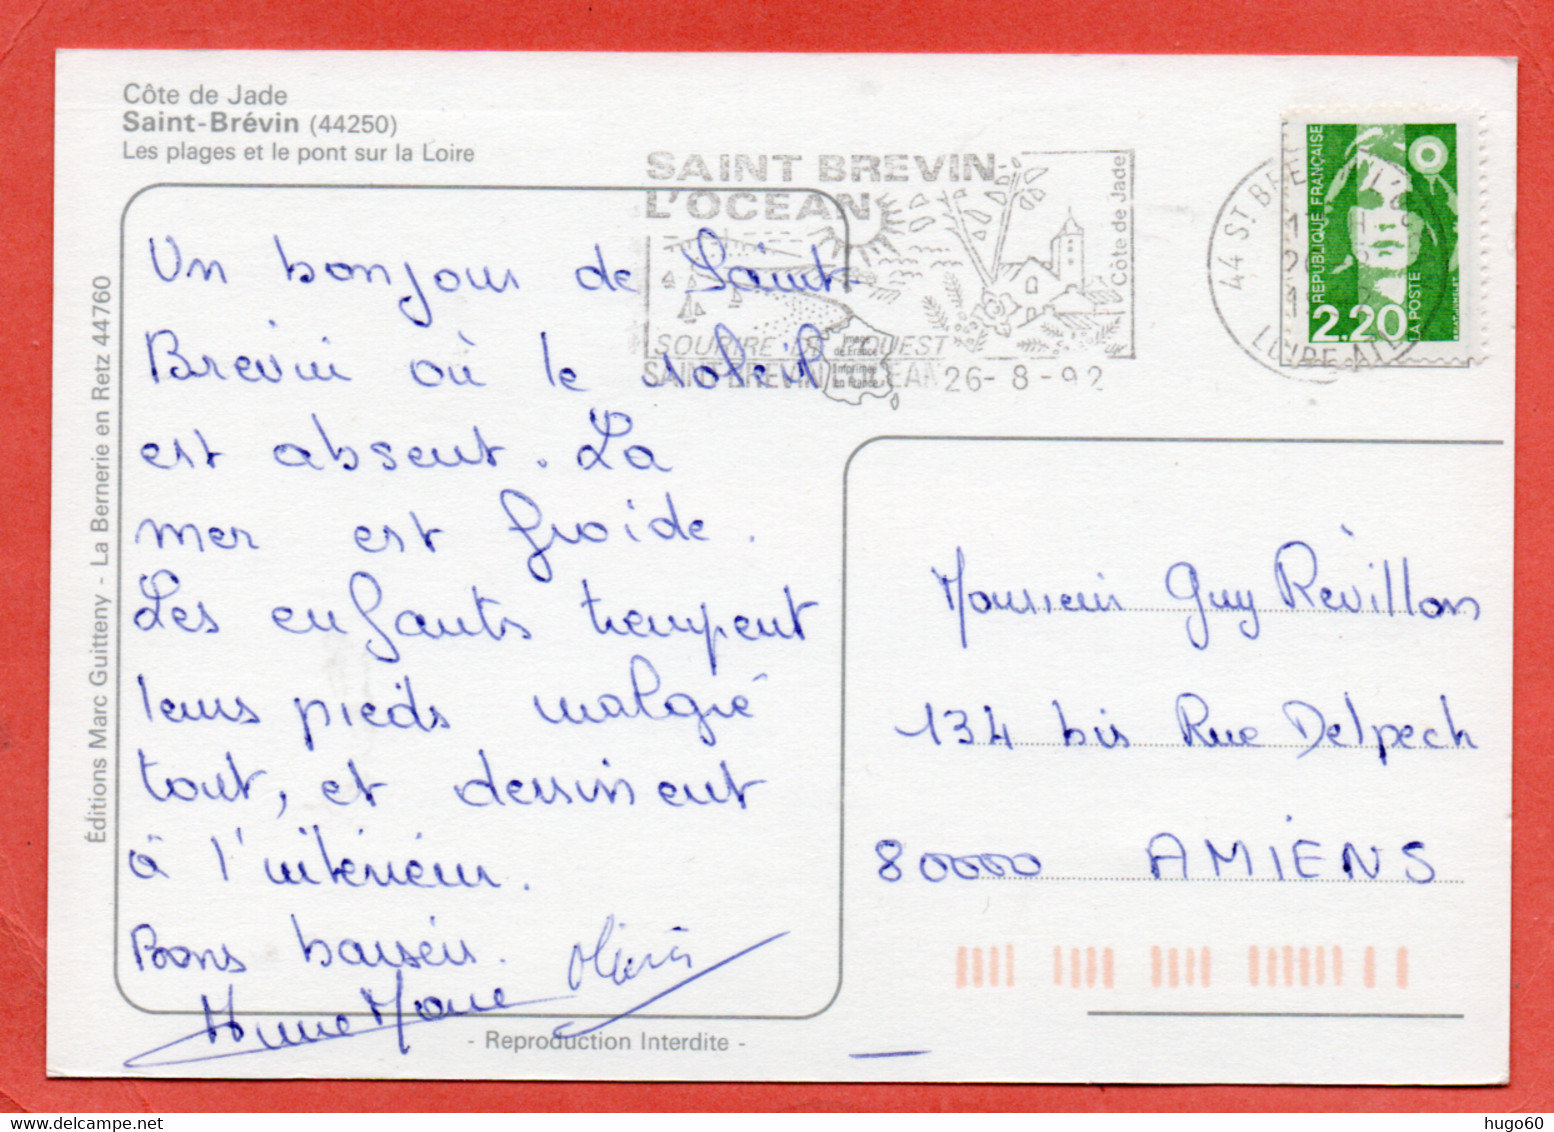 Côte de Jade
Saint-Brévin (44250)
Les plages et le pont sur la Loire
Éditions Marc Guitteny - La Bernerie en Retz 44760
SAINT BREVIN
L'OCEAN
Côte de Jade
SOURIRE DE L'OUEST
SAINT-BREVIN L'OCEAN 26-8-92
44 ST BREVIN
LOIRE-ATL
REPUBLIQUE FRANÇAISE
2.20
LA POSTE
Un bonjour de Saint-
Brevin où le soleil
est absent. La
mer est froide.
Les enfants trempent
leurs pieds malgré
tout, et dessinent
à l'intérieur.
Bons baisers.
Anne Marie Olivier
Monsieur Guy Révillon
134 bis Rue Delpech
80000 AMIENS
- Reproduction Interdite -
hugo60